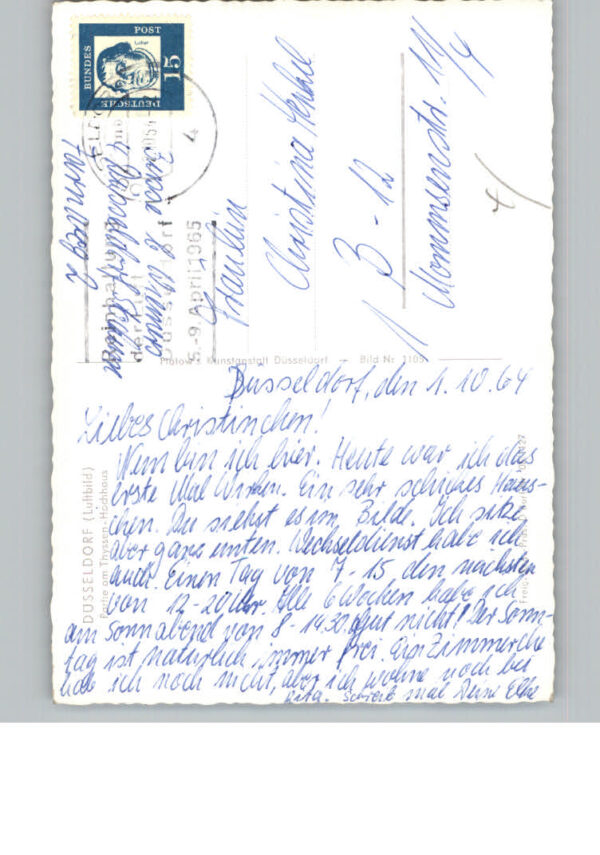 DEUTSCHE BUNDES POST
Luther
15
4
Reinhaltung
der Luft
Düsseldorf
5.-9. April 1965
4 Düsseldorf
Fräulein
Christina
1 B - 12
Mommsenstr.
Kunstanstalt Düsseldorf Bild Nr. 1105
DÜSSELDORF (Luftbild)
Partie am Thyssen-Hochhaus
Düsseldorf, den 1.10.64
Liebes Christinchen!
Nun bin ich hier. Heute war ich das
erste Mal Ein sehr schönes Häus-
chen. Du siehst es im Bilde. Ich sitze
aber ganz unten. Wechseldienst habe ich
auch. Einen Tag von 7 - 15, den nächsten
von 12 - 20 Uhr. Alle 6 Wochen habe ich
am Sonnabend von 8 - 14.30. Gut nicht! Der Sonn-
tag ist natürlich immer frei. Ein Zimmerche
hab ich noch nicht, aber ich wohne noch bei
Schreib mal Deine Elke